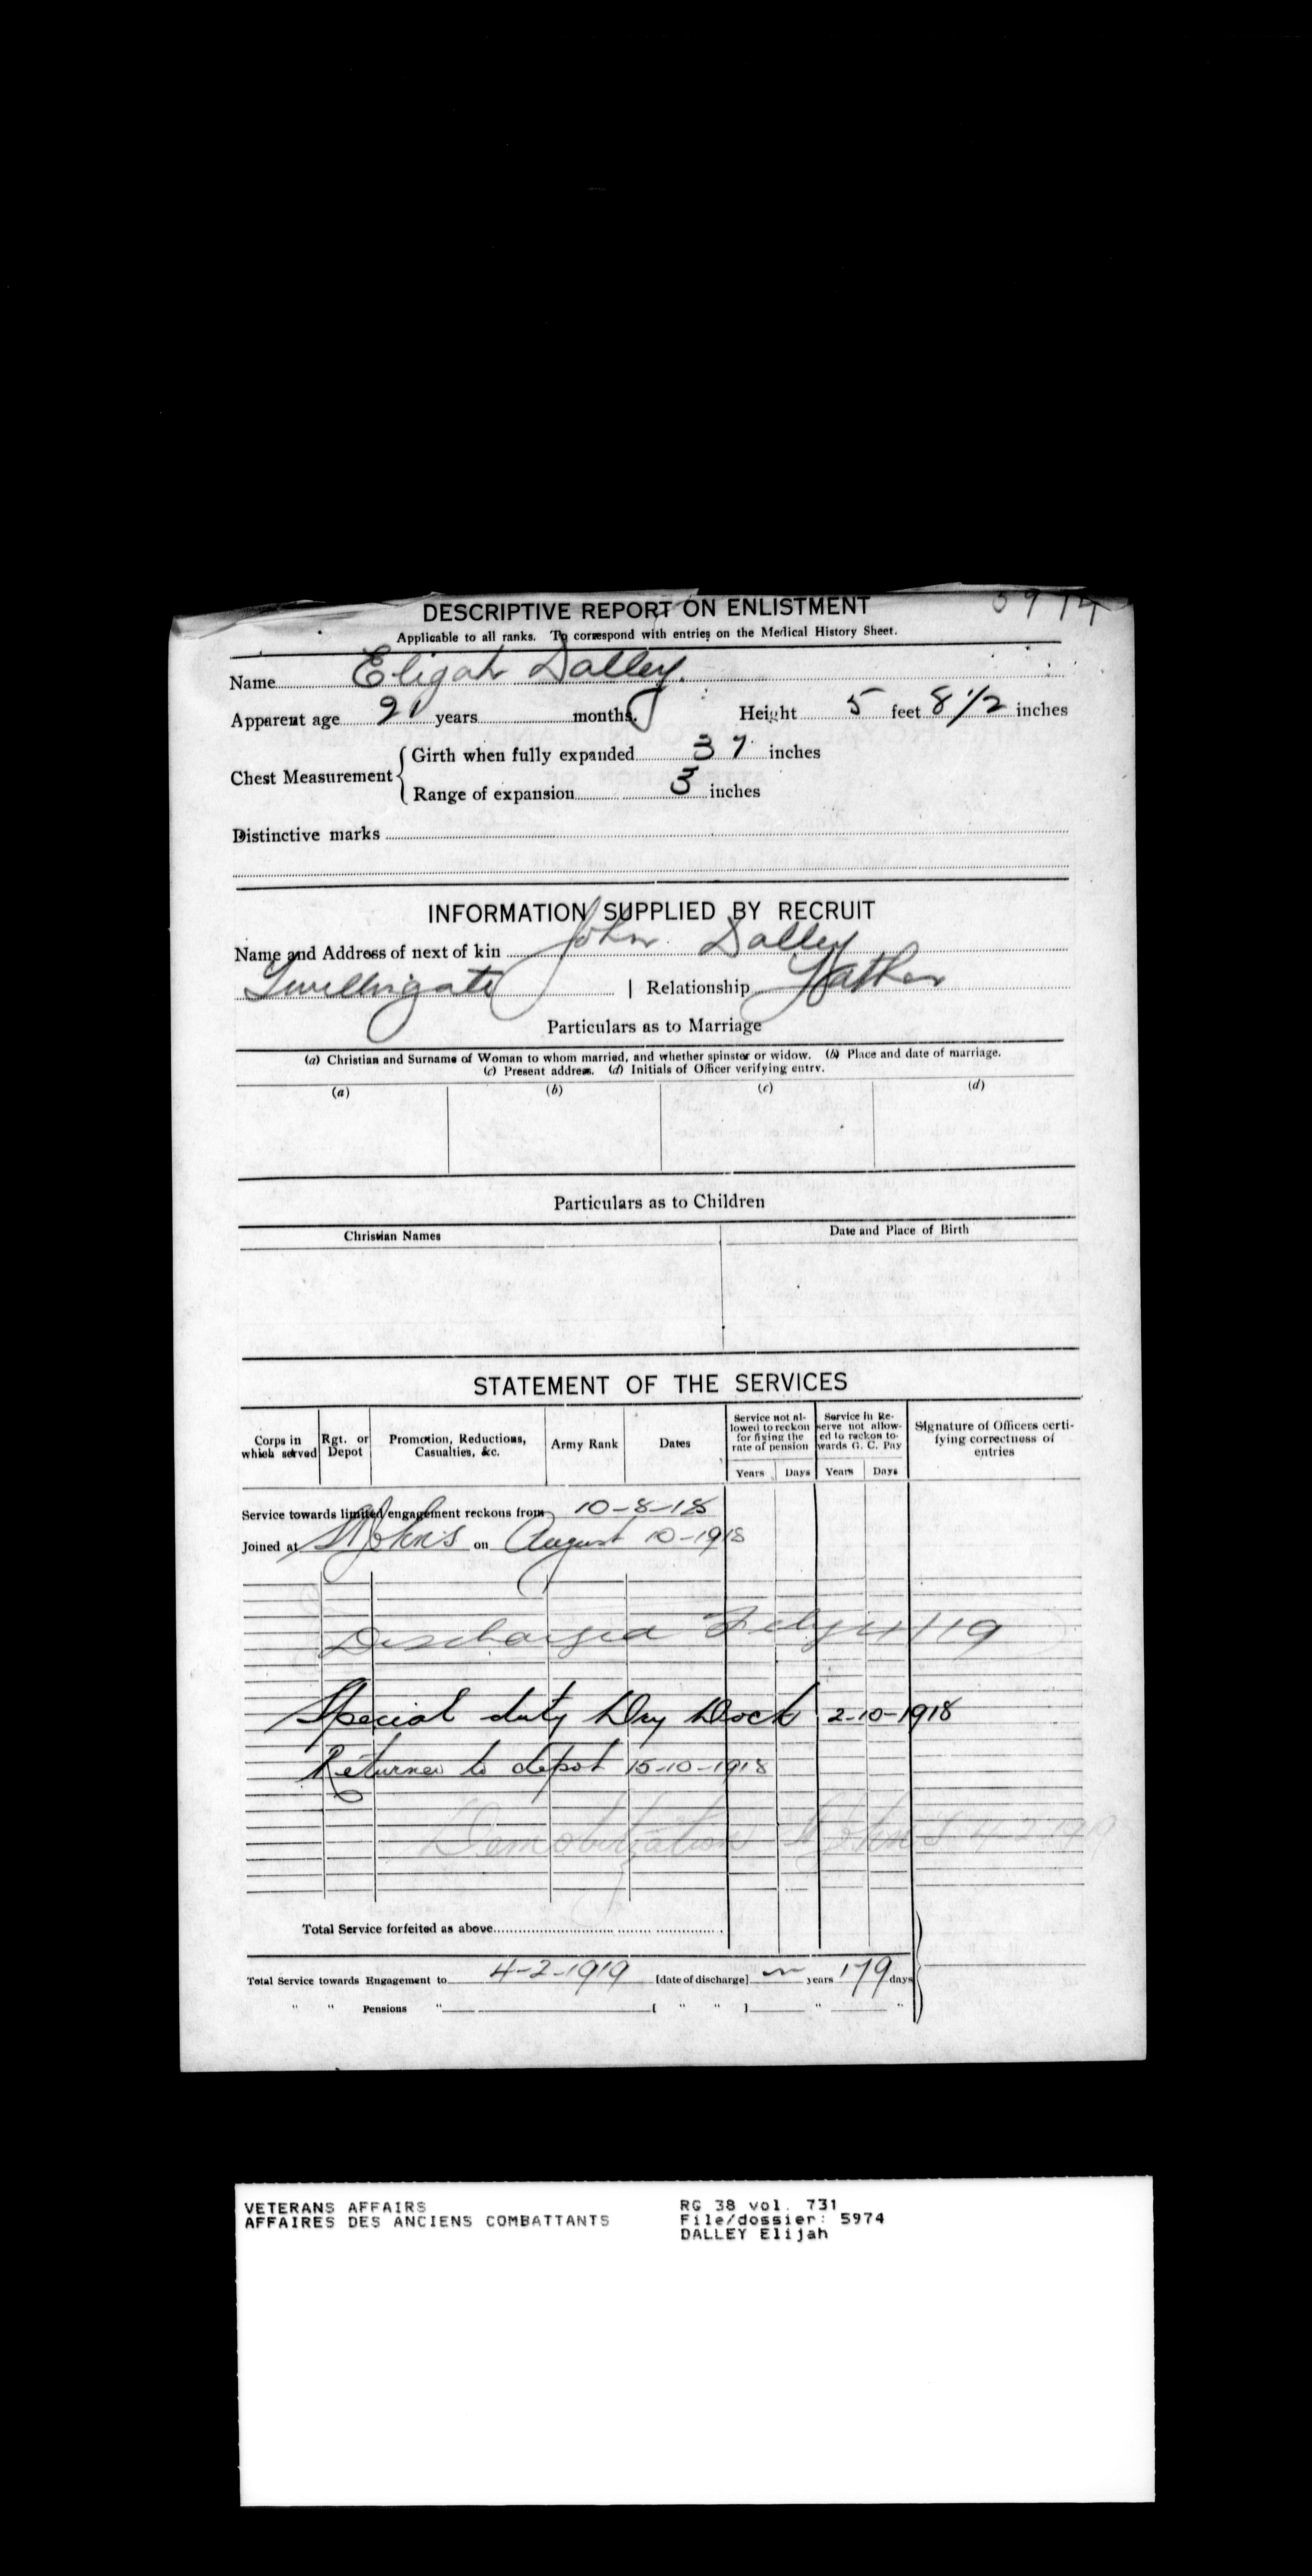 DESCRIPTIVE REPORT ON ENLISTMENT 5974
Applicable to all ranks. To correspond with entries on the Medical History Sheet.
Name Elijah Dalley.
Apparent age 21 years months. Height 5 feet 8 1/2 inches
Chest Measurement { Girth when fully expanded 37 inches
Range of expansion 3 inches
Distinctive marks
INFORMATION SUPPLIED BY RECRUIT
Name and Address of next of kin John Dalley
Twillingate | Relationship Father
Particulars as to Marriage
(a) Christian and Surname of Woman to whom married, and whether spinster or widow. (b) Place and date of marriage.
(c) Present address. (d) Initials of Officer verifying entry.
(a) (b) (c) (d)
Particulars as to Children
Christian Names Date and Place of Birth
STATEMENT OF THE SERVICES
Corps in which served Rgt. or Depot Promotion, Reductions, Casualties, &c. Army Rank Dates Service not allowed to reckon for fixing the rate of pension Service in Reserve not allowed to reckon towards G. C. Pay Signature of Officers certifying correctness of entries
Years Days Years Days
Service towards limited engagement reckons from 10-8-18
Joined at St Johns on August 10-1918
Discharged Feby 4/19
Special duty Dry Dock 2-10-1918
Returned to depot 15-10-1918
Demobilization St Johns 4-2-1919
Total Service forfeited as above
Total Service towards Engagement to 4-2-1919 [date of discharge] years 179 days
" " Pensions " [ " " ] " "
VETERANS AFFAIRS RG 38 vol. 731
AFFAIRES DES ANCIENS COMBATTANTS File/dossier: 5974
DALLEY Elijah